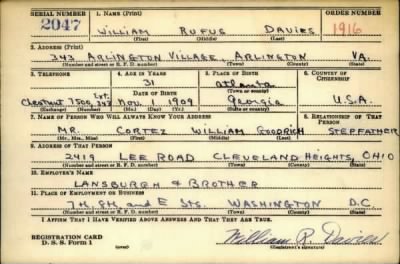 SERIAL NUMBER 1. NAME (Print) ORDER NUMBER
2047 WILLIAM RUFUS DAVIES 1916
(First) (Middle) (Last)
2. ADDRESS (Print)
343 ARLINGTON VILLAGE, ARLINGTON VA.
(Number and street or R. F. D. number) (Town) (County) (State)
3. TELEPHONE 4. AGE IN YEARS 5. PLACE OF BIRTH 6. COUNTRY OF CITIZENSHIP
31 Atlanta
DATE OF BIRTH (Town or county)
Ext.
Chestnut 7500, 343 Nov. 1909 Georgia U.S.A.
(Exchange) (Number) (Mo.) (Day) (Yr.) (State or country)
7. NAME OF PERSON WHO WILL ALWAYS KNOW YOUR ADDRESS 8. RELATIONSHIP OF THAT PERSON
MR. CORTEZ WILLIAM GOODRICH STEPFATHER
(Mr., Mrs., Miss) (First) (Middle) (Last)
9. ADDRESS OF THAT PERSON
2419 LEE ROAD CLEVELAND HEIGHTS, OHIO
(Number and street or R. F. D. number) (Town) (County) (State)
10. EMPLOYER'S NAME
LANSBURGH & BROTHER
11. PLACE OF EMPLOYMENT OR BUSINESS
7th, 8th, and E Sts. WASHINGTON D.C.
(Number and street or R. F. D. number) (Town) (County) (State)
I AFFIRM THAT I HAVE VERIFIED ABOVE ANSWERS AND THAT THEY ARE TRUE.
REGISTRATION CARD
D. S. S. Form 1 William R. Davies
(Registrant's signature)